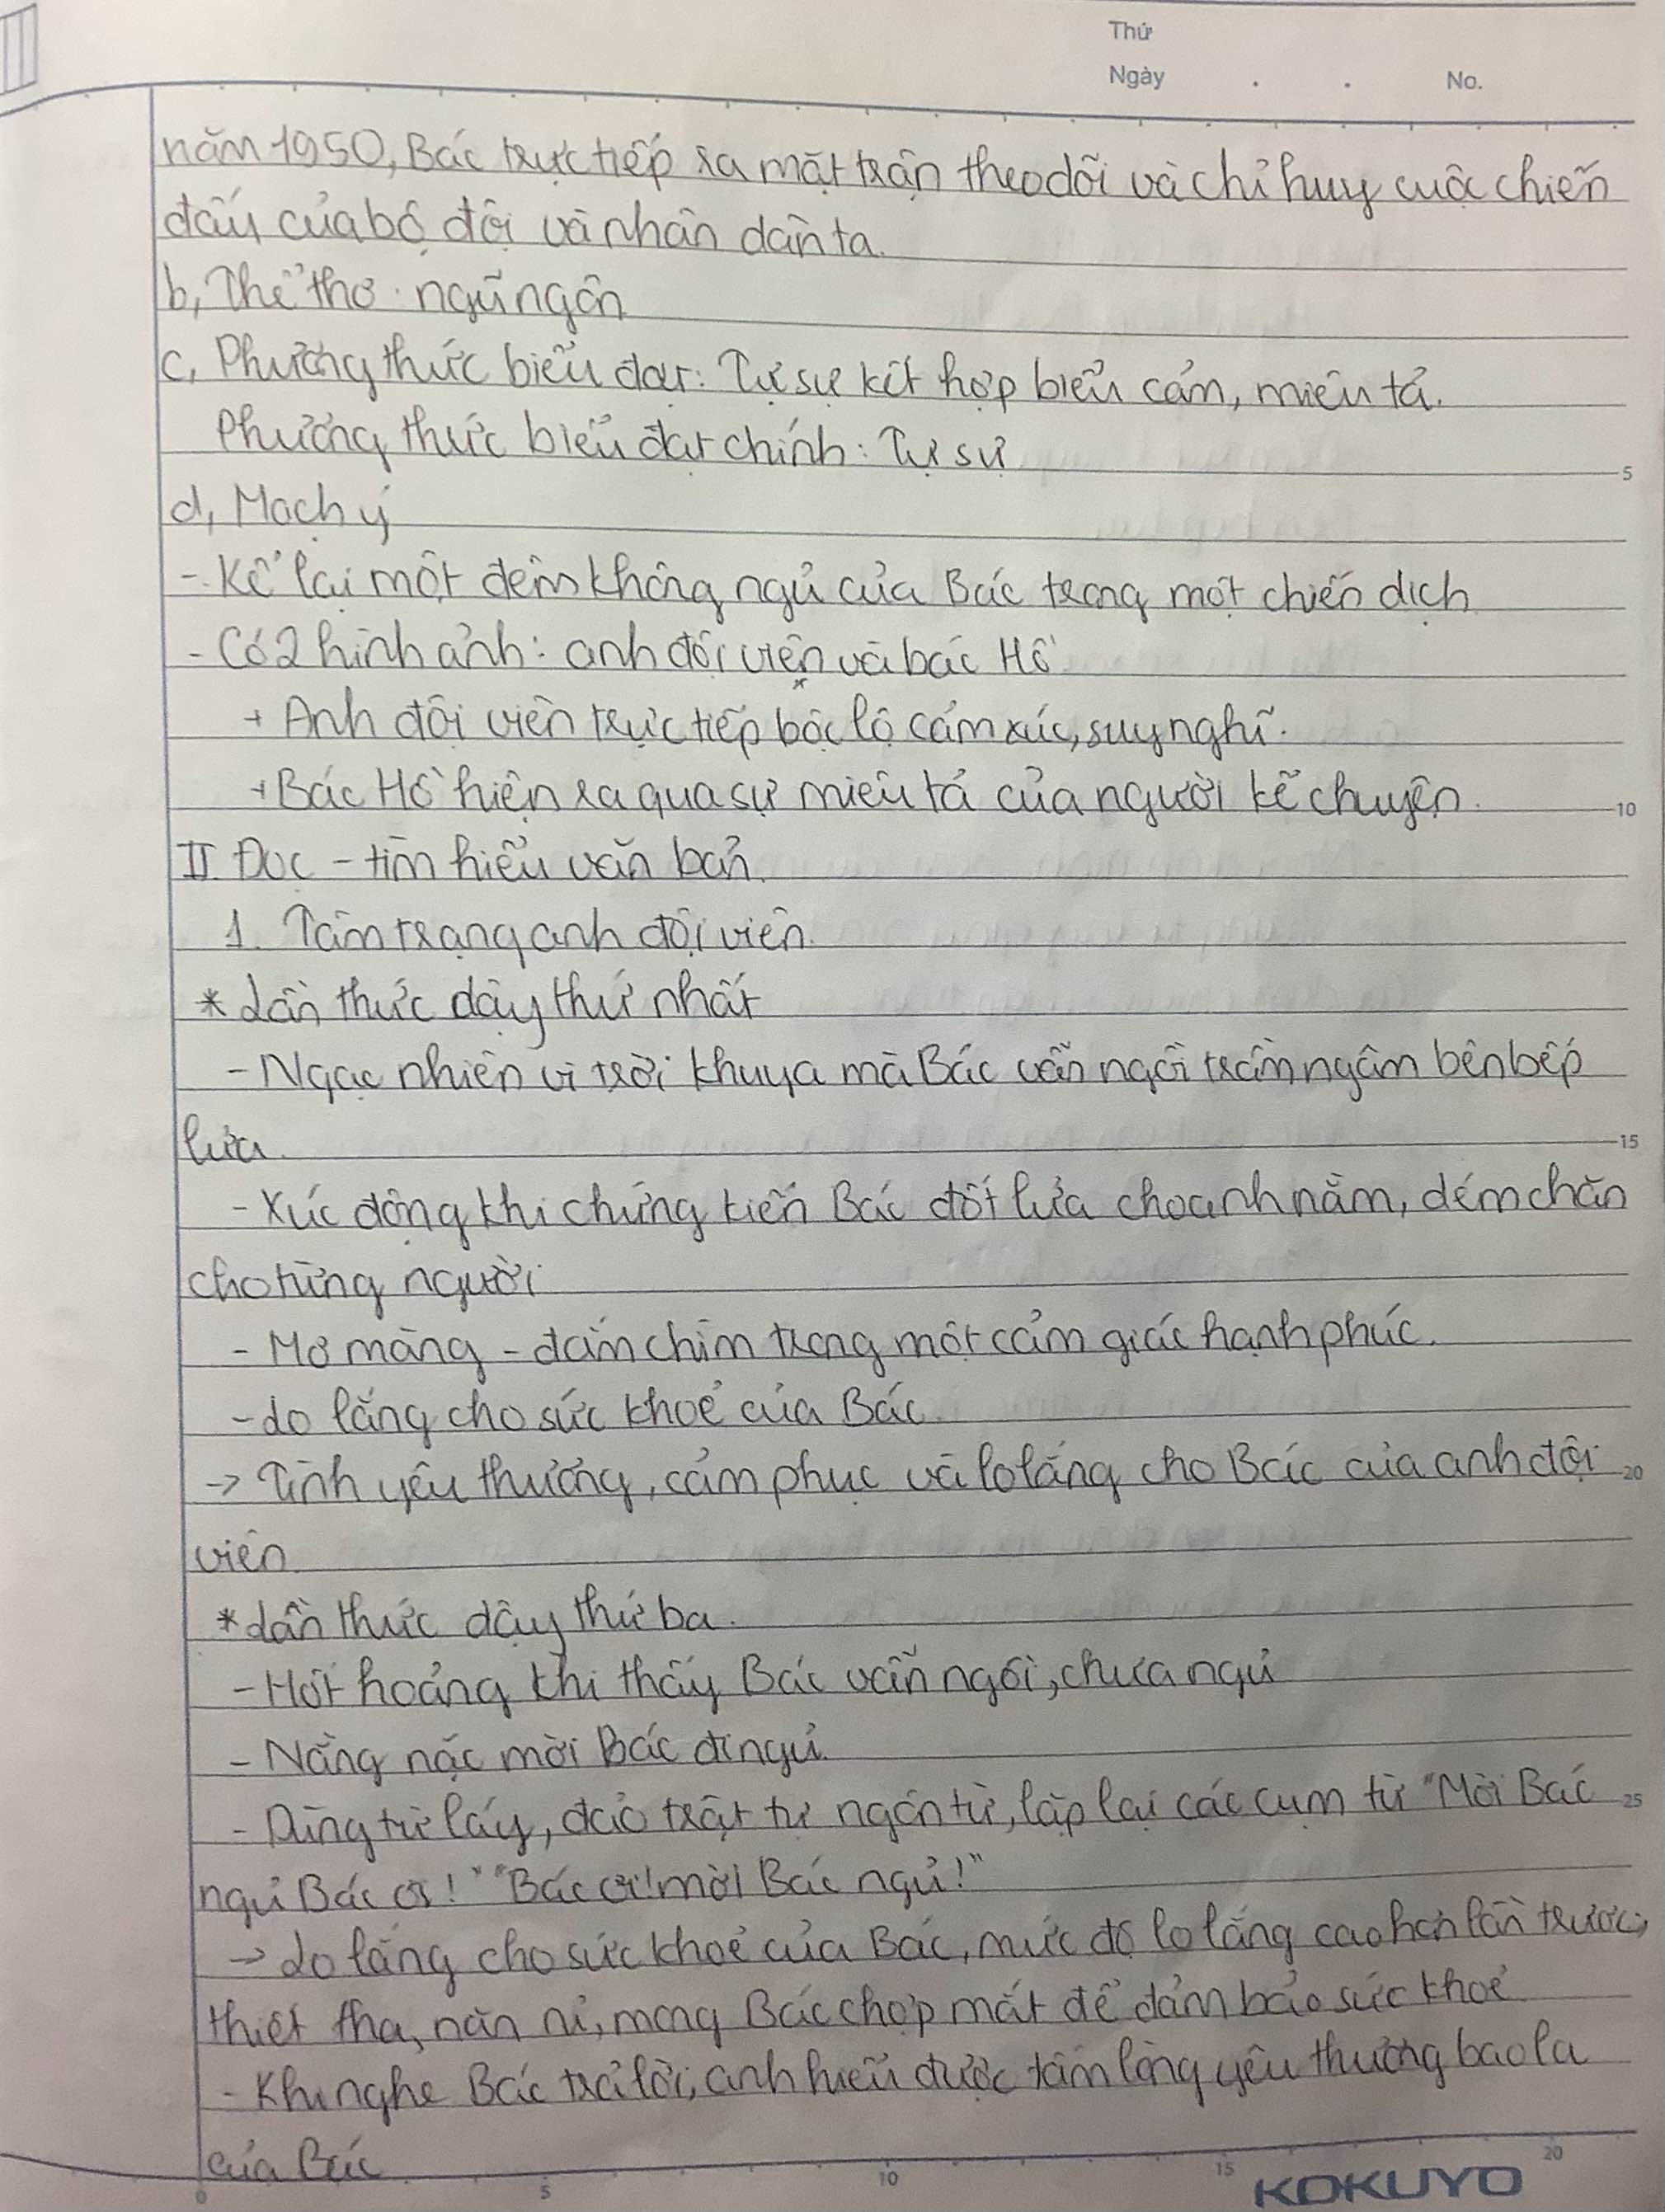 Thứ
Ngày . . No.
năm 1950, Bác trực tiếp ra mặt trận theo dõi và chỉ huy cuộc chiến
đấu của bộ đội và nhân dân ta.
b, Thể thơ: ngũ ngôn
c, Phương thức biểu đạt: Tự sự kết hợp biểu cảm, miêu tả.
Phương thức biểu đạt chính: Tự sự
5
d, Mạch ý
- Kể lại một đêm không ngủ của Bác trong một chiến dịch
- Có 2 hình ảnh: anh đội viên và bác Hồ
+ Anh đội viên trực tiếp bộc lộ cảm xúc, suy nghĩ.
+ Bác Hồ hiện ra qua sự miêu tả của người kể chuyện.
10
II. Đọc - tìm hiểu văn bản
1. Tâm trạng anh đội viên.
* Lần thức dậy thứ nhất
- Ngạc nhiên vì trời khuya mà Bác vẫn ngồi trầm ngâm bên bếp
lửa.
15
- Xúc động khi chứng kiến Bác đốt lửa cho anh nằm, dém chăn
cho từng người
- Mơ màng - đắm chìm trong một cảm giác hạnh phúc.
- Lo lắng cho sức khoẻ của Bác.
→ Tình yêu thương, cảm phục và lo lắng cho Bác của anh đội
20
viên.
* Lần thức dậy thứ ba.
- Hốt hoảng khi thấy Bác vẫn ngồi, chưa ngủ
- Nằng nặc mời Bác đi ngủ.
- Dùng từ láy, đảo trật tự ngôn từ, lặp lại các cụm từ "Mời Bác
25
ngủ Bác ơi!" "Bác ơi! mời Bác ngủ!"
→ Lo lắng cho sức khoẻ của Bác, mức độ lo lắng cao hơn lần trước,
thiết tha, năn nỉ, mong Bác chợp mắt để đảm bảo sức khoẻ
- Khi nghe Bác trả lời, anh hiểu được tấm lòng yêu thương bao la
của Bác
0 5 10 15 20
KOKUYO